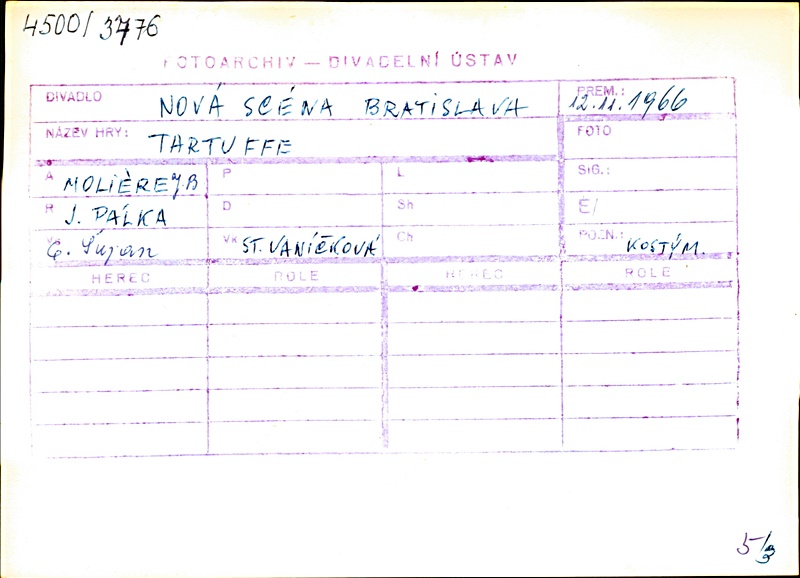 4500/3776
FOTOARCHIV — DIVADELNÍ ÚSTAV
DIVADLO NOVÁ SCÉNA BRATISLAVA PREM.: 12.11.1966
NÁZEV HRY: TARTUFFE FOTO
A MOLIÈRE J.B P L SIG.:
R J. PÁLKA D Sh É/
V E. Šujan VK ST. VANÍČKOVÁ Ch POZN.: KOSTÝM.
HEREC ROLE HEREC ROLE
5/3